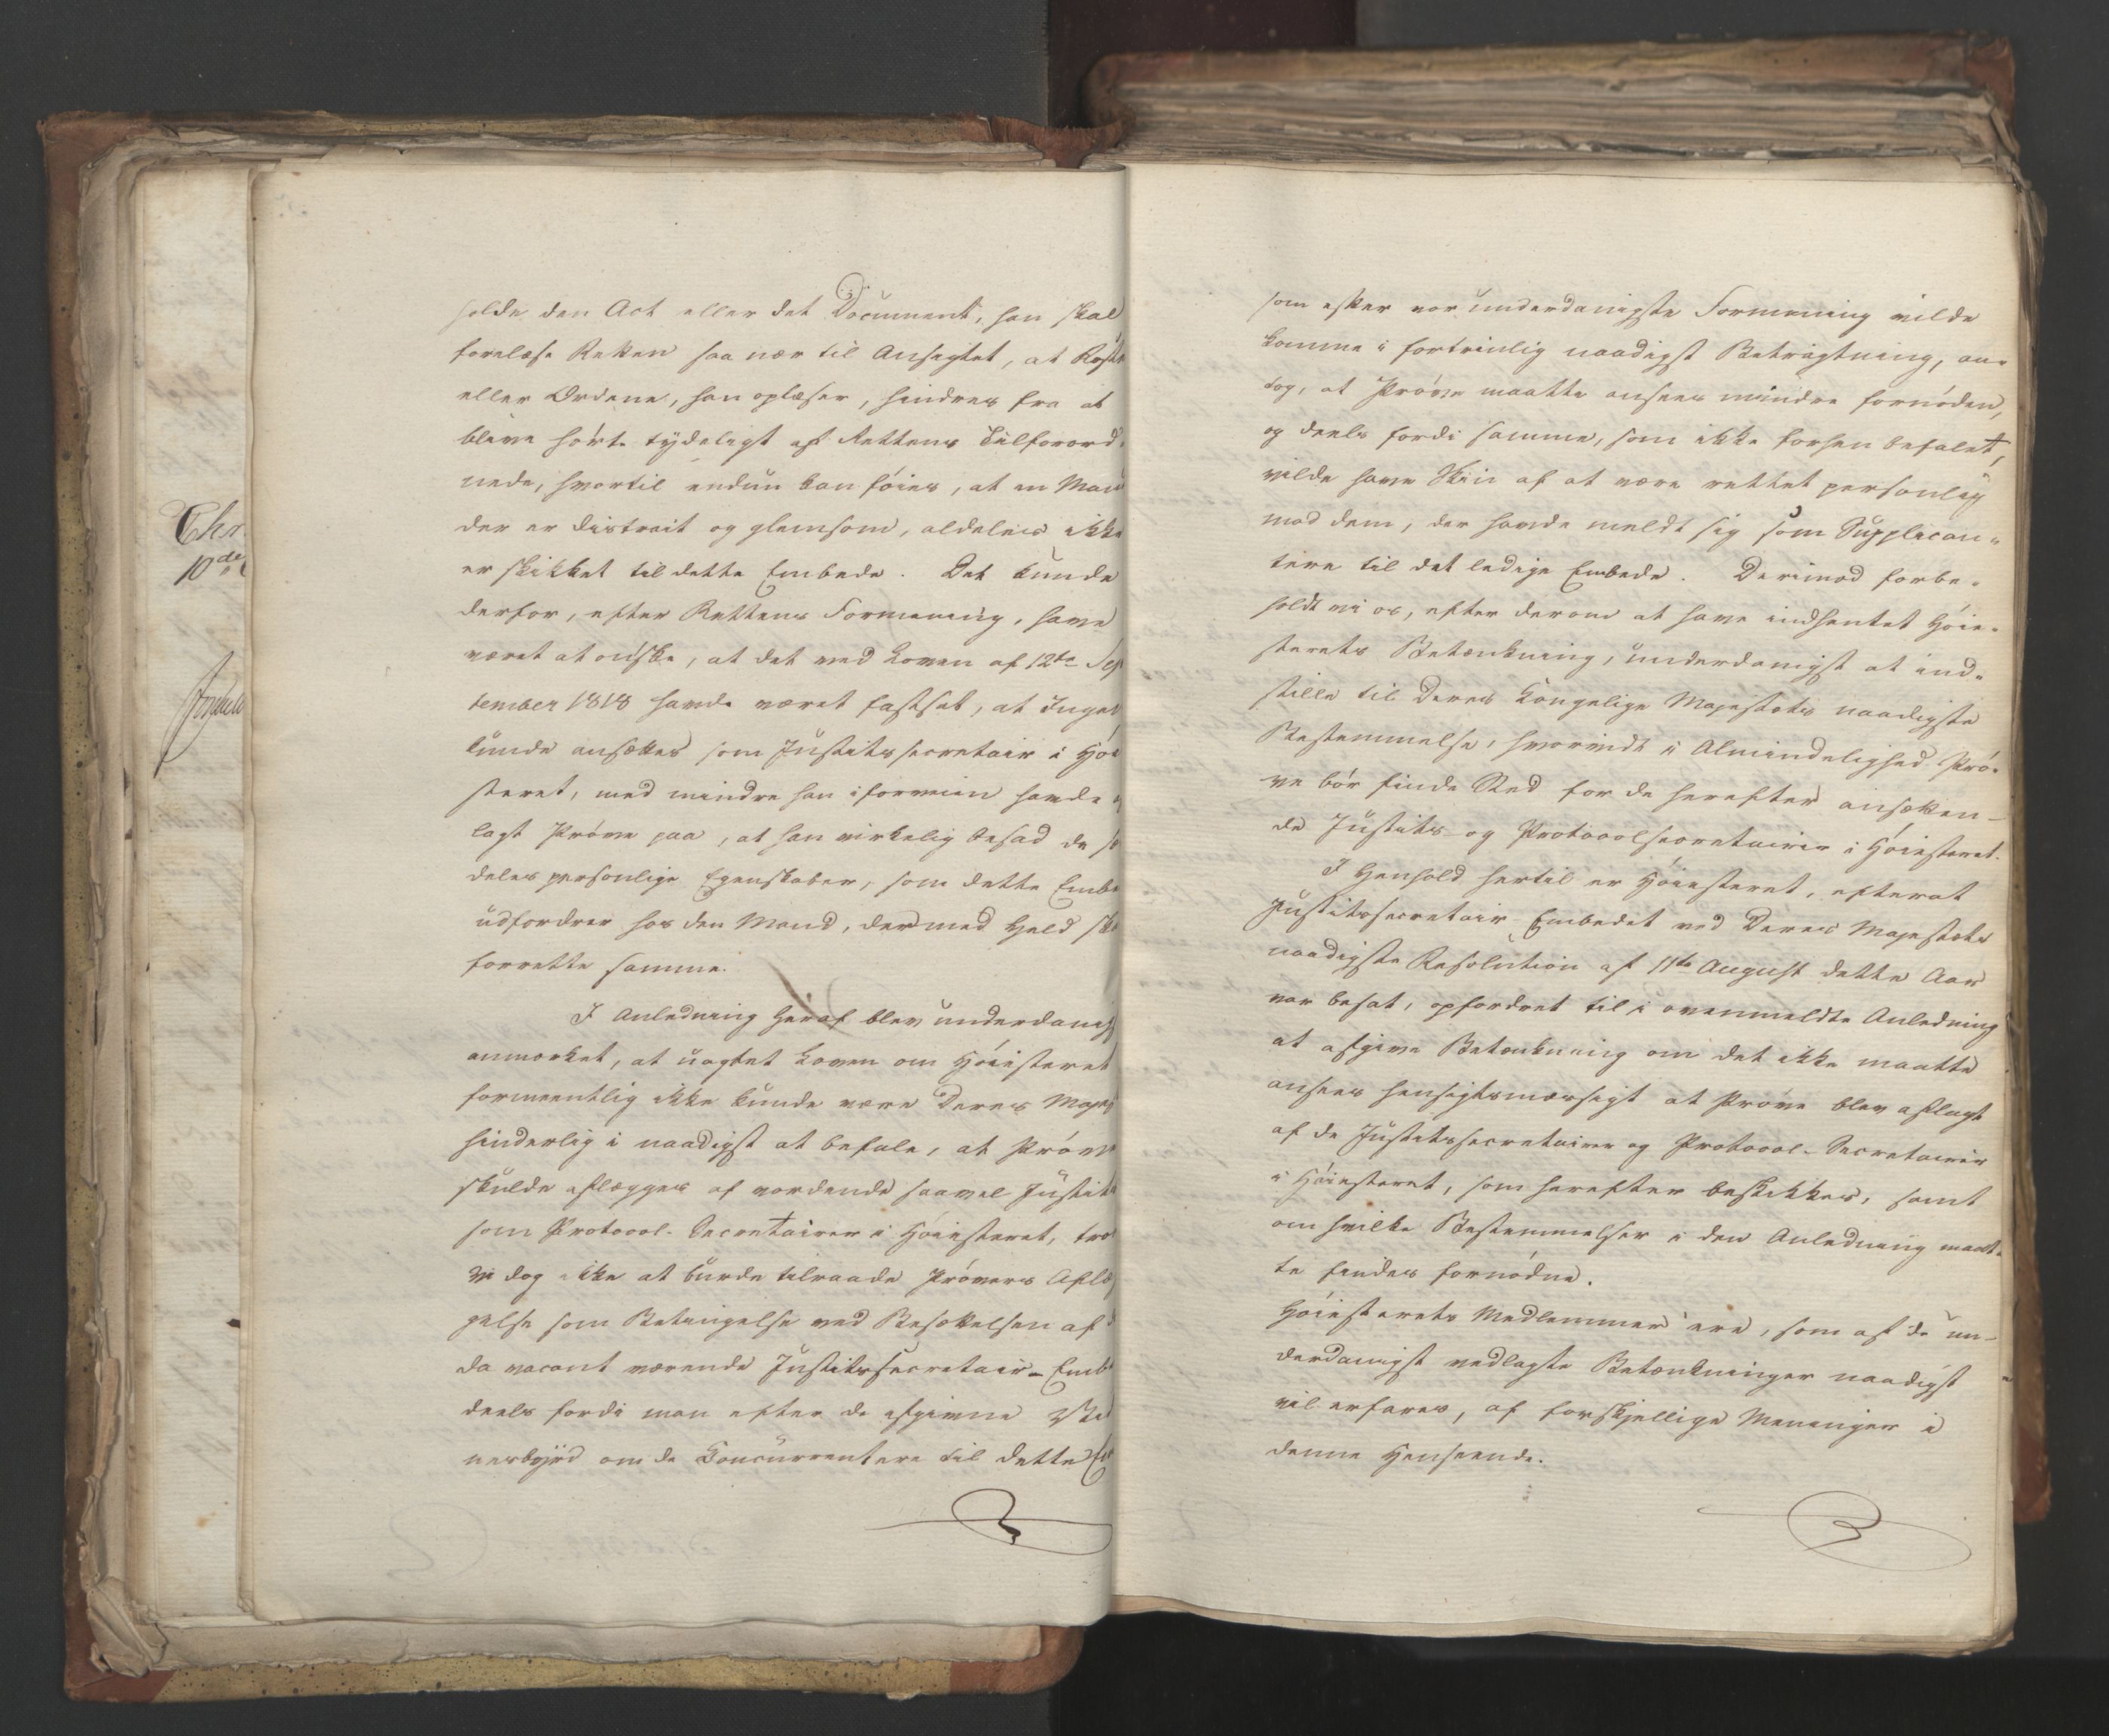 Chr.
10de
holde den Act eller det Document, han skal
forelæse Retten saa nær til Ansigtet, at Røst
eller Ordene, han oplæser, hindres fra at
blive hørte tydeligt af Rettens Tilforord-
nede, hvortil endnu kan føies, at en Mand
der er distrait og glemsom, aldeles ikke
er skikket til dette Embede. Det kunde
derfor, efter Rettens Formening, have
været at ønske, at det ved Loven af 12te Sep
tember 1818 havde været fastsat, at Ingen
kunde ansættes som Justitssecretair i Høie
steret, med mindre han i forveien havde a
lagt Prøve paa, at han virkelig besad de sær
deles personlige Egenskaber, som dette Embe
udfordrer hos den Mand, der med Held skal
forrette samme.
I Anledning heraf blev underdanigst
anmærket, at uagtet Loven om Høiesteret
formeentlig ikke kunde være Deres Majest
hinderlig i naadigst at befale, at Prøve
skulde aflægges af vordende saavel Justits
som Protocol-Secretairer i Høiesteret, troe
vi dog ikke at burde tilraade Prøvers Aflæg
gelse som Betingelse ved Besættelsen af d
da vacant værende Justitssecretair-Embe
deels fordi man efter de afgivne Vid
nesbyrd om de Concurrentere til dette Em
som efter vor underdanigste Formening vilde
komme i fortrinlig naadigst Betragtning, an-
tog, at Prøve maatte ansees mindre fornøden,
og deels fordi samme, som ikke forhen befalet,
vilde have Skin af at være rettet personlig
mod dem, der havde meldt sig som Supplican-
tere til det ledige Embede. Derimod forbe-
holdt vi os, efter derom at have indhentet Høie-
sterets Betænkning, underdanigst at ind-
stille til Deres Kongelige Majestæts naadigste
Bestemmelse, hvorvidt i Almindelighed Prø-
ve bør finde Sted for de herefter ansætten-
de Justits og Protocolsecretairer i Høiesteret.
I Henhold hertil er Høiesteret, efterat
Justitssecretair-Embedet ved Deres Majestæts
naadigste Resolution af 11te August dette Aar
var besat, opfordret til i ovenmeldte Anledning
at afgive Betænkning om det ikke maatte
ansees hensigtsmæssigt at Prøve blev aflagt
af de Justitssecretairer og Protocol-Secretairer
i Høiesteret, som herefter beskikkes, samt
om hvilke Bestemmelser i den Anledning maat-
te findes fornødne.
Høiesterets Medlemmer ere, som af de un-
derdanigst vedlagte Betænkninger naadigst
vil erfares, af forskjellige Meninger i
denne Henseende.